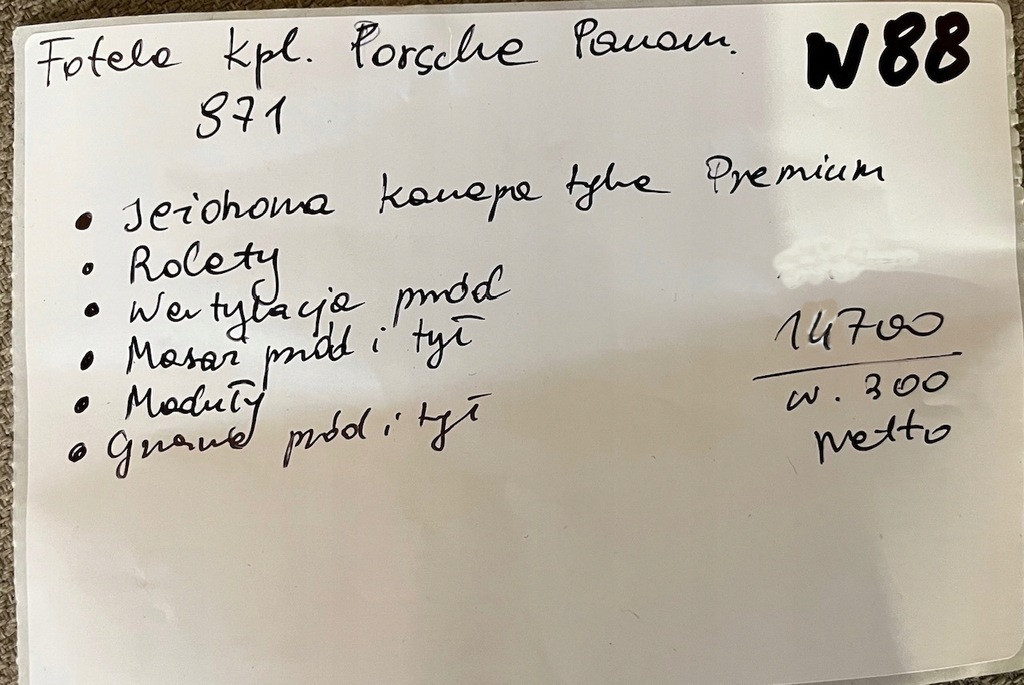 Fotele kpl. Porsche Panam.
W88
971
• Jeżdżona kanapa tylna Premium
• Rolety
• Wentylacja przód
• Masaż przód i tył
• Moduły
• Grzanie przód i tył
14700
w. 300
netto